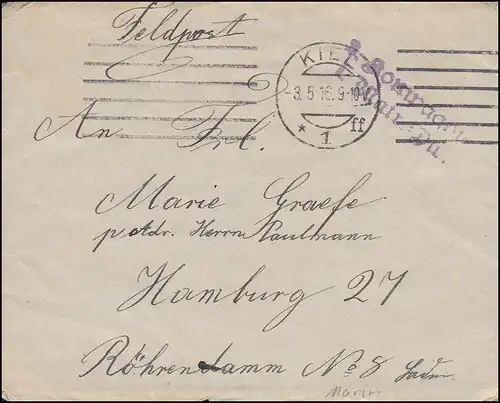 Feldpost
KIEL
-3.5.16.9-10
* 1 ff
An Frl.
Marie Graefe
p. Adr. Herrn Paulmann
Hamburg 27
Röhrendamm No 8